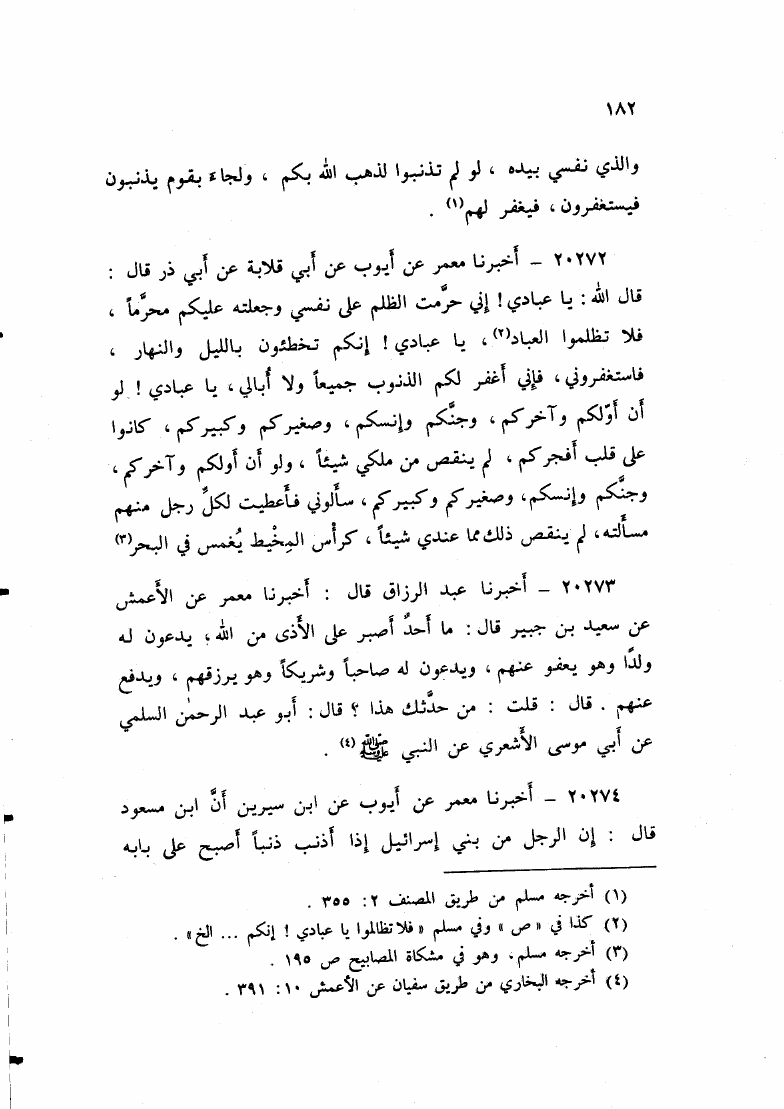 ١٨٢
والذي نفسي بيده ، لو لم تذنبوا لذهب الله بكم ، ولجاء بقوم يذنبون
فيستغفرون ، فيغفر لهم(١) .
٢٠٢٧٢ – أخبرنا معمر عن أيوب عن أبي قلابة عن أبي ذر قال :
قال الله : يا عبادي ! إني حرَّمت الظلم على نفسي وجعلته عليكم محرَّماً ،
فلا تظلموا العباد(٢) ، يا عبادي ! إنكم تخطئون بالليل والنهار ،
فاستغفروني ، فإني أغفر لكم الذنوب جميعاً ولا أُبالي ، يا عبادي ! لو
أن أوّلكم وآخركم ، وجنَّكم وإنسكم ، وصغيركم وكبيركم ، كانوا
على قلب أفجركم ، لم ينقص من ملكي شيئاً ، ولو أن أولكم وآخركم ،
وجنَّكم وإنسكم ، وصغيركم وكبيركم ، سألوني فأعطيت لكلِّ رجل منهم
مسألته ، لم ينقص ذلك مما عندي شيئاً ، كرأس المِخْيط يُغمس في البحر(٣)
٢٠٢٧٣ – أخبرنا عبد الرزاق قال : أخبرنا معمر عن الأعمش
عن سعيد بن جبير قال : ما أحدٌ أصبر على الأذى من الله ؛ يدعون له
ولدًا وهو يعفو عنهم ، ويدعون له صاحباً وشريكاً وهو يرزقهم ، ويدفع
عنهم . قال : قلت : من حدَّثك هذا ؟ قال : أبو عبد الرحمٰن السلمي
عن أبي موسى الأشعري عن النبي ﷺ(٤) .
٢٠٢٧٤ – أخبرنا معمر عن أيوب عن ابن سيرين أنَّ ابن مسعود
قال : إن الرجل من بني إسرائيل إذا أذنب ذنباً أصبح على بابه
(١) أخرجه مسلم من طريق المصنف ٢ : ٣٥٥ .
(٢) كذا في « ص » وفي مسلم « فلا تظالموا يا عبادي ! إنكم ... الخ » .
(٣) أخرجه مسلم ، وهو في مشكاة المصابيح ص ١٩٥ .
(٤) أخرجه البخاري من طريق سفيان عن الأعمش ١٠ : ٣٩١ .